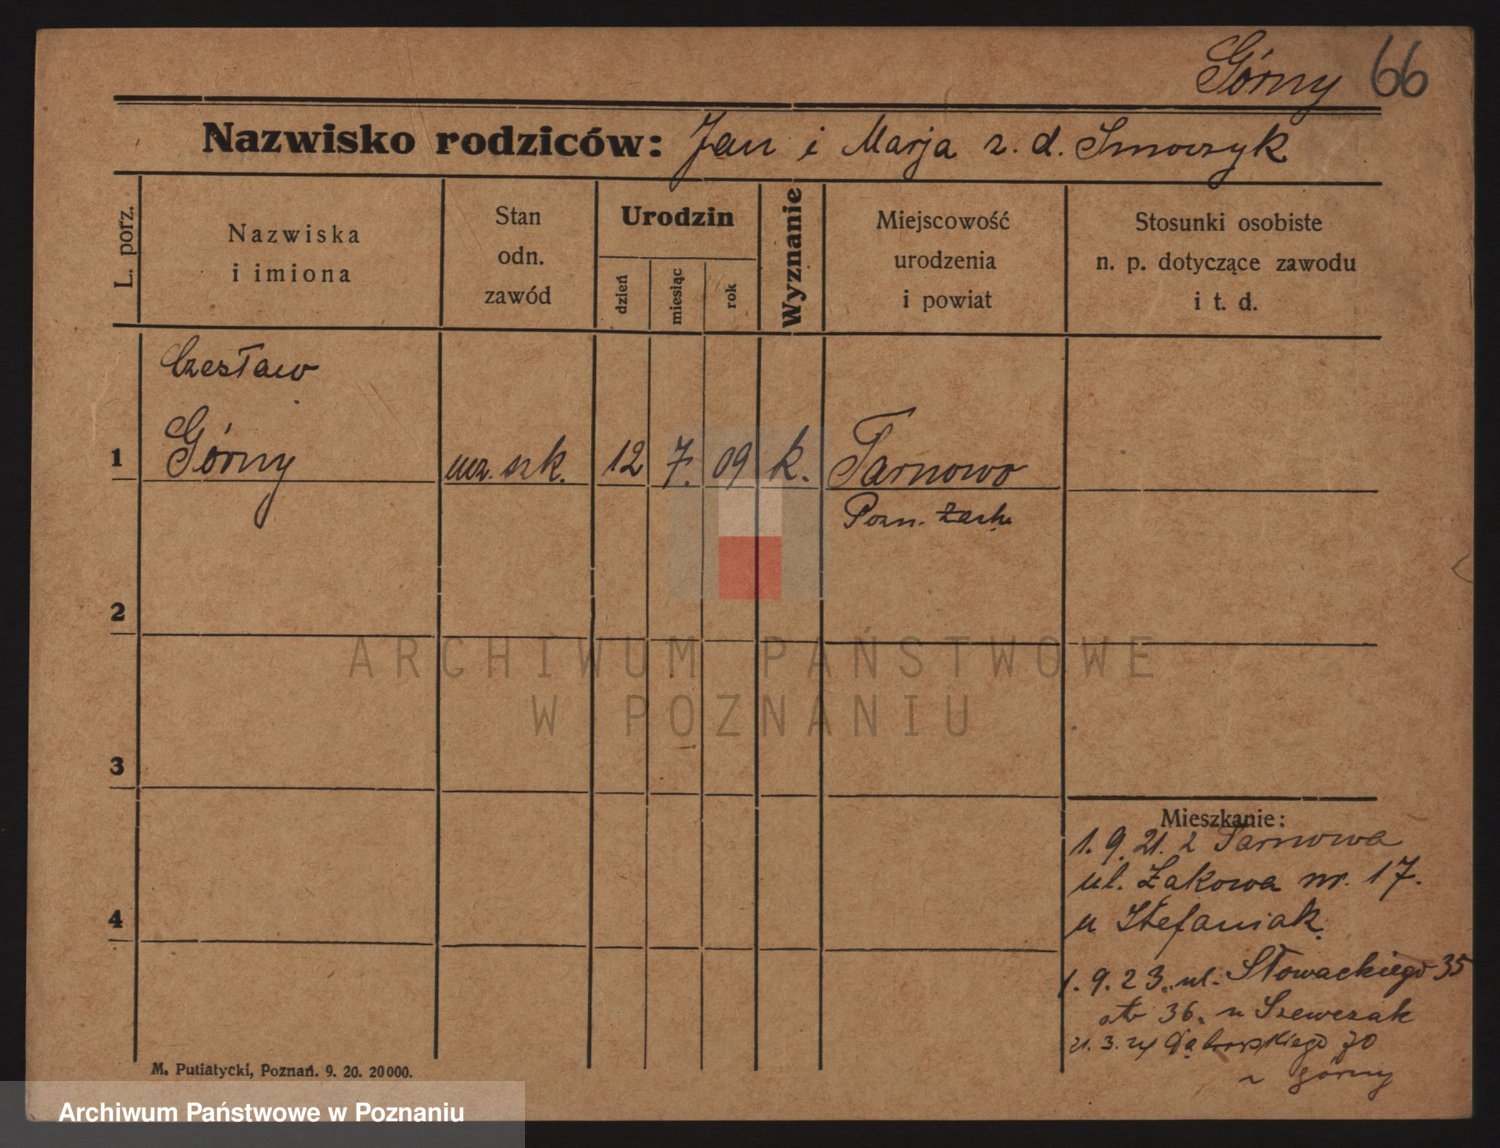 Górny 66
Nazwisko rodziców: Jan i Marja z. d. Smoczyk
L. porz.
Nazwiska
i imiona
Stan
odn.
zawód
Urodzin
dzień
miesiąc
rok
Wyznanie
Miejscowość
urodzenia
i powiat
Stosunki osobiste
n. p. dotyczące zawodu
i t. d.
Czesław
1 Górny ucz. szk. 12 7. 09 k. Tarnowo
Pozn. Zach.
2
ARCHIWUM PAŃSTWOWE
W POZNANIU
3
Mieszkanie:
1. 9. 21. z Tarnowa
ul. Żakowa nr. 17.
u Stefaniak.
4
1. 9. 23. ul. Słowackiego 35
36. u Szewczak
21. 3. 24 Dąbrowskiego 70
Górny
M. Putiatycki, Poznań. 9. 20. 20000.
Archiwum Państwowe w Poznaniu